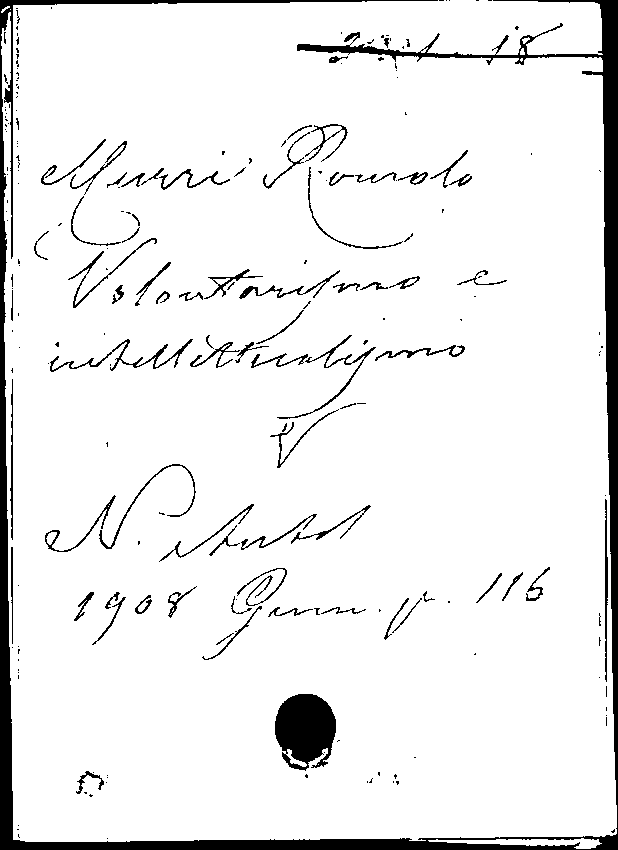 Murri Romolo
Volontarismo e
intellettualismo
N. Antol
1908 Genn. p. 116